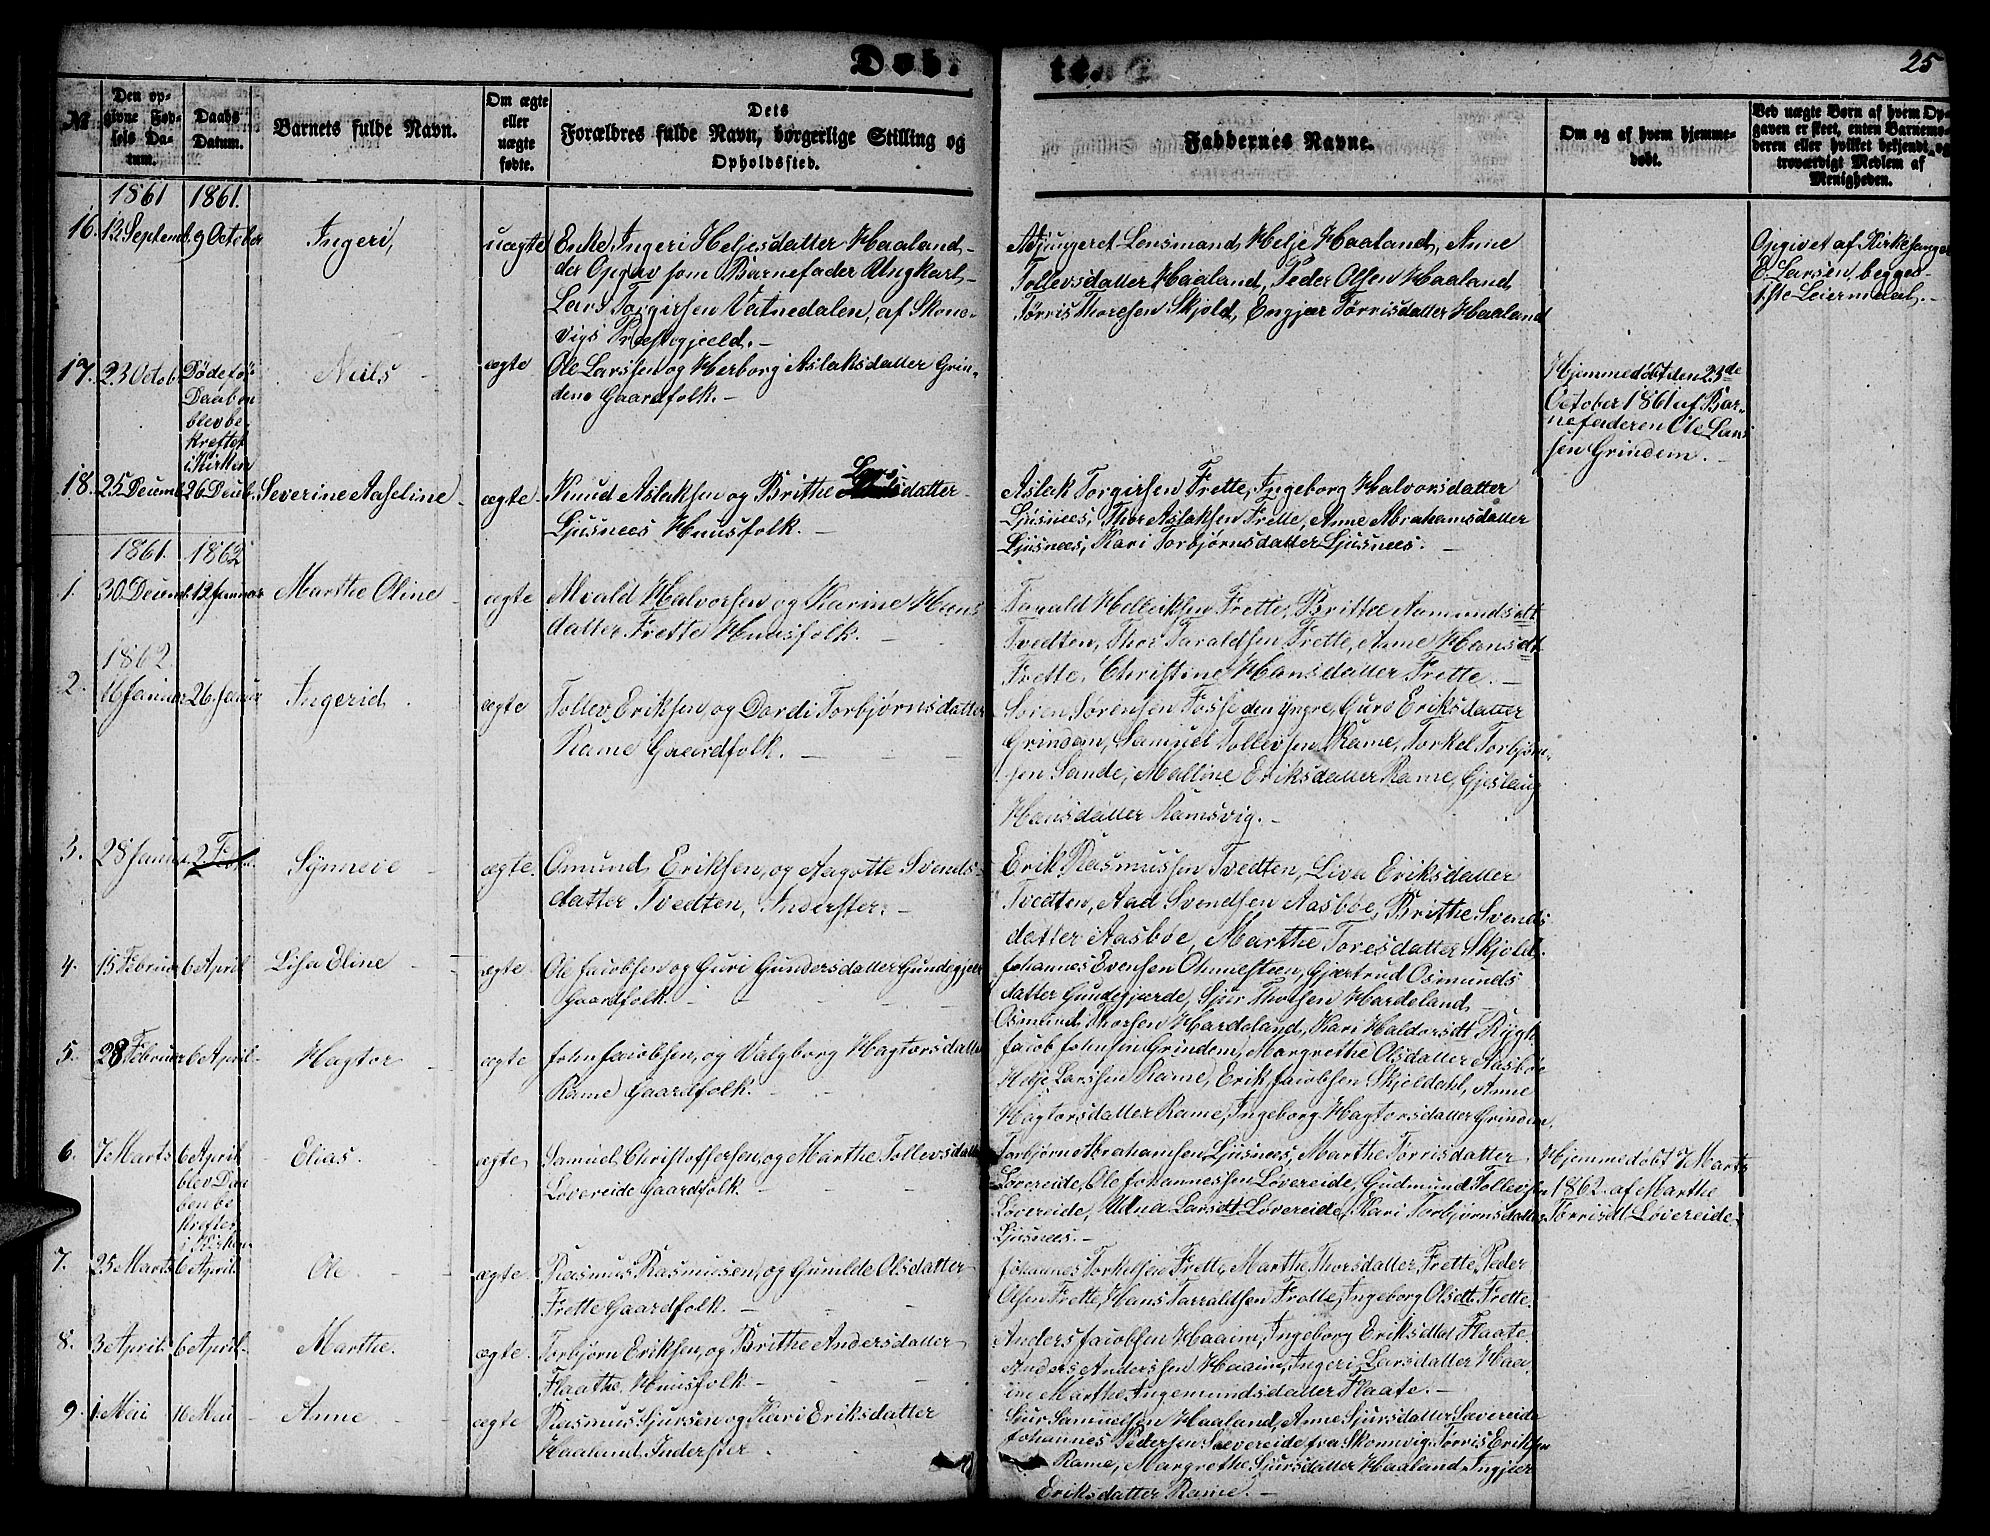 Døb. te. 25
№ Den opgivne Fødsels Datum. Daabs Datum. Barnets fulde Navn. Om ægte eller uægte fødte. Dets Forældres fulde Navn, borgerlige Stilling og Opholdssted. Faddernes Navne. Om og af hvem hjemmedøbt. Ved uægte Børn af hvem Opgaven er skeet, enten Barnemoderen eller hvilket bekjendt og troværdigt Medlem af Menigheden.
1861 1861.
16. 13 Septemb. 9 October Ingeri, uægte Enke, Ingeri Heljesdatter Haaland,
der Opgav som Barnefader Ungkarl,
Lars Torgirsen Vatnedalen, af Skone-
vigs Præstegjeld. -
Adjungeret Lensmand, Helje Haaland, Anne
Tollevsdatter Haaland, Peder Olsen Haaland
Tørris Thoresen Skjold, Engjær Tørrisdatter Haaland
Opgivet af Kirkesanger
E. Larsen, begges
1ste Leiermaal. -
17. 23 Octob. Døde før
Daaben
blev be-
kreftet
i Kirken
Neils ægte Ole Larssen og Herborg Aslaksdatter Grin-
dene Gaardfolk. -
Hjemmedøbt den 23de
October 1861 af Bar-
nefaderen Ole Lars
sen Grindem. -
18. 25 Decemb. 26 Decb. Severine Aaseline - ægte. Knud Aslaksen og Brithe Lars datter
Ljusnees Huusfolk. -
Aslak Torgirsen Frette, Ingeborg Halvorsdatter
Ljusnees, Thor Aslaksen Frette, Anne Abrahamsdatter
Ljusnees, Kari Torbjørnsdatter Ljusnees. -
1861. 1862
1. 30 Decemb. 12 Januar Marthe Oline - ægte Halvorsen og Karine Hans
datter Frette Huusfolk. -
Frette, Brithe Aamundsdtt
Tvedten, Thor Taraldsen Frette, Anne Hansdt
Frette, Christine Hansdatter Frette. -
1862
2. 16 Januar 26 Januar Ingerid. ægte Tollev Eriksen, og Dordi Torbjørnsdatter
Rame Gaardfolk. -
Søren Sørensen Fosse den yngre, Guro Eriksdatter
Grindem, Samuel Tollevsen Rame, Torkel Torbjørn-
sen Sande, Malline Eriksdatter Rame, Gjeslaug
Hansdatter Ramsvig. -
3. 28 Januar 2 Synneve - ægte. Omund Eriksen, og Aagotte Svends-
datter Tvedten, Inderster. -
Erik Rasmussen Tvedten, Liva Eriksdatter
Tvedten, Aad Svendsen Aasbøe, Brithe Svends
datter Aasbøe, Marthe Toresdatter Skjold.
4. 15 Februar 6 April Lisa Eline ægte Ole Jacobsen og Guri Gundersdatter Gundegjær
Gaardfolk. -
Johannes Evensen Ommesteen, Gjærtrud Osmunds
datter Gundegjærde, Sjur Thorsen Hardeland
Osmund Thorsen Hardeland, Kari Haldorsdt Rygh
5. 28 Februar 6 April - Hagtor - ægte John Jacobsen, og Valgborg Hagtorsdatter
Rame Gaardfolk. -
Jacob Johnsen Grindem, Margrethe Olsdatter Aasbøe
Helje Larssen Rame, Erik Jacobsen Skjeldahl, Anne
Hagtorsdatter Rame, Ingeborg Hagtorsdatter Grindem.
6. 7 Marts 6 April
blev Daa
ben be-
krefter
i Kirken
Elias. ægte, Samuel Christoffersen, og Marthe Tollevsdatter
Løvereide Gaardfolk. -
Torbjørn Abrahamsen Ljusnees, Marthe Tørrisdatter
Løvereide, Ole Johannessen Løvereide, Gudmund Tollevsen
Løvereide, Larsdt Løvereide, Kari Torbjørnsdatter
Ljusnees. -
Hjemmedøbt 7 Marts
1862 af Marthe
Tørrisdt Løvereide.
7. 25 Marts 6 April Ole. ægte. Rasmus Rasmusen, og Gunilde Olsdatter
Frette Gaardfolk. -
Johannes Torkelsen Frette, Marthe Thorsdatter Frette, Peder
Olsen Frette, Hans Tarraldsen Frette, Ingeborg Olsdt. Frette.
8. 3 April. 6 April. Marthe. ægte. Torbjørn Eriksen, og Brithe Andersdatter
Flaathe, Huusfolk. -
Anders Jacobsen Haaim, Ingeborg Eriksdtat Flaate
Anders Anderssen Haaim, Ingeri Larsdatter Haa
im Marthe Ingemundsdatter Flaate. -
9. 1. Mai 16 Mai Anne ægte Rasmus Sjursen og Kari Eriksdatter
Haaland Inderster.
Sjur Samuelsen Haaland, Anne Sjursdatter Løvereide
Johannes Pedersen Løvereide fra Skonevig, Tørris Eriksen
Rame, Margrethe Sjursdatter Haaland, Ingjær
Eriksdatter Rame. -